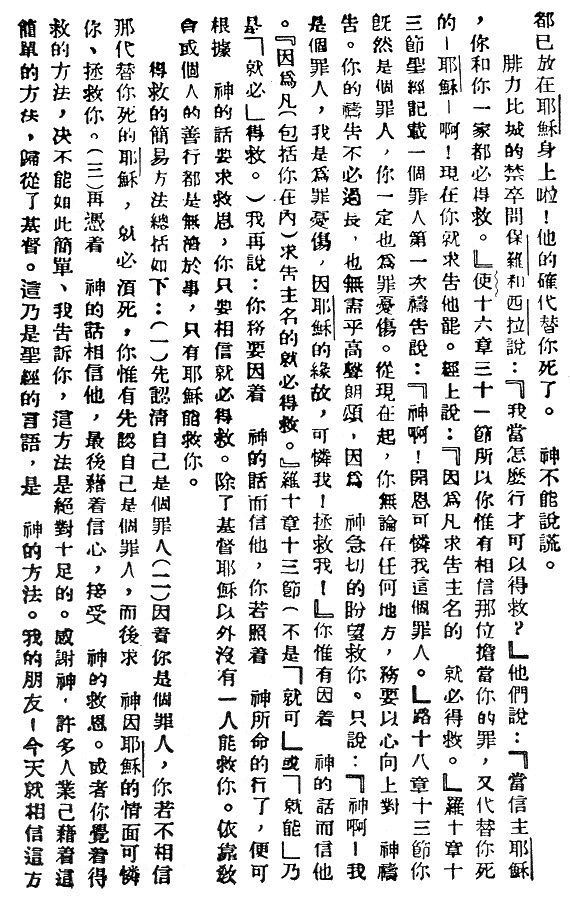 都已放在耶穌身上啦！他的確代替你死了。　神不能說謊。
腓力比城的禁卒問保羅和西拉說：『我當怎麼行才可以得救？』他們說：『當信主耶穌
，你和你一家都必得救。』使十六章三十一節所以你惟有相信那位擔當你的罪，又代替你死
的—耶穌—啊！現在你就求告他罷。經上說：『因爲凡求告主名的　就必得救。』羅十章十
三節聖經記載一個罪人第一次禱告說：『神啊！開恩可憐我這個罪人。』路十八章十三節你
旣然是個罪人，你一定也爲罪憂傷。從現在起，你無論在任何地方，務要以心向上對　神禱
告。你的禱告不必過長，也無需乎高聲朗頌，因爲　神急切的盼望救你。只說：『神啊！我
是個罪人，我是爲罪憂傷，因耶穌的緣故，可憐我！拯救我！』你惟有因着　神的話而信他
。『因爲凡（包括你在內）求告主名的就必得救。』羅十章十三節（不是「就可」或「就能」乃
是「就必」得救。）我再說：你務要因着　神的話而信他，你若照着　神所命的行了，便可
根據　神的話要求救恩，你只要相信就必得救。除了基督耶穌以外沒有一人能救你。依靠敎
會或個人的善行都是無濟於事，只有耶穌能救你。
得救的簡易方法總括如下：（一）先認清自己是個罪人（二）因着你是個罪人，你若不相信
那代替你死的耶穌，就必須死，你惟有先認自己是個罪人，而後求　神因耶穌的情面可憐
你、拯救你。（三）再憑着　神的話相信他，最後藉着信心，接受　神的救恩。或者你覺着得
救的方法，決不能如此簡單、我告訴你，這方法是絕對十足的。感謝神，許多人業已藉着這
簡單的方法，歸從了基督。這乃是聖經的言語，是　神的方法。我的朋友！今天就相信這方